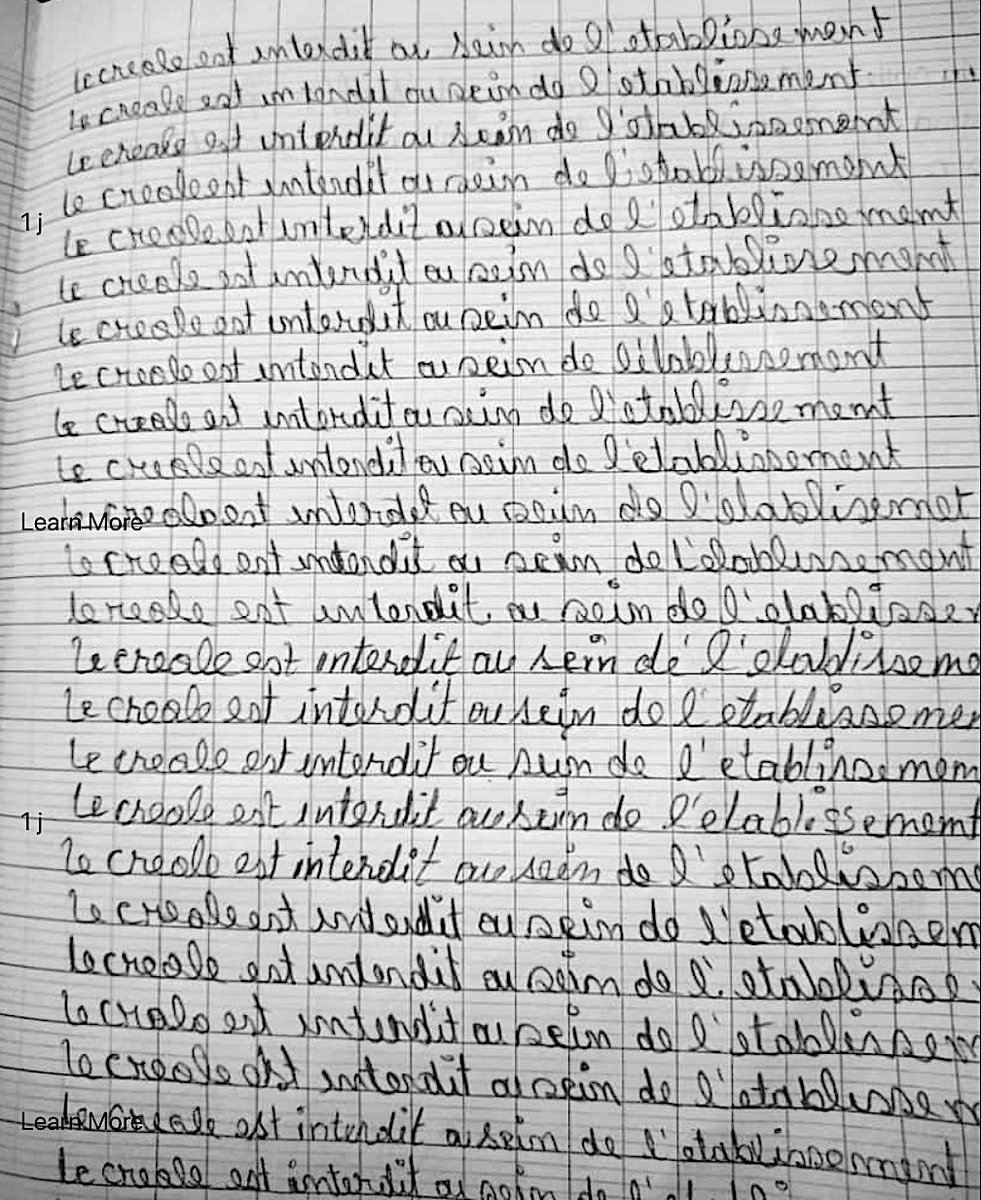 le creole est interdit au sein de l'etablissement
le creole est interdit au sein de l'etablissement
le creole est interdit au sein de l'etablissement
le creole est interdit au sein de l'etablissement
1 j
le creole est interdit au sein de l'etablissement
le creole est interdit au sein de l'etablissement
le creole est interdit au sein de l'etablissement
le creole est interdit au sein de l'etablissement
le creole est interdit au sein de l'etablissement
le creole est interdit au sein de l'etablissement
Learn More
le creole est interdit au sein de l'etablisemet
le creole est interdit au sein de l'etablissement
le creole est interdit au sein de l'etablissem
le creole est interdit au sein de l'etablisseme
le creole est interdit au sein de l'etablissemen
le creole est interdit au sein de l'etablissemen
1 j
le creole est interdit au sein de l'etablissement
le creole est interdit au sein de l'etablisseme
le creole est interdit au sein de l'etablissem
le creole est interdit au sein de l'etablisse
le creole est interdit au sein de l'etablissem
le creole est interdit au sein de l'etablissem
Learn More
le creole est interdit au sein de l'etablissement
le creole est interdit au sein de